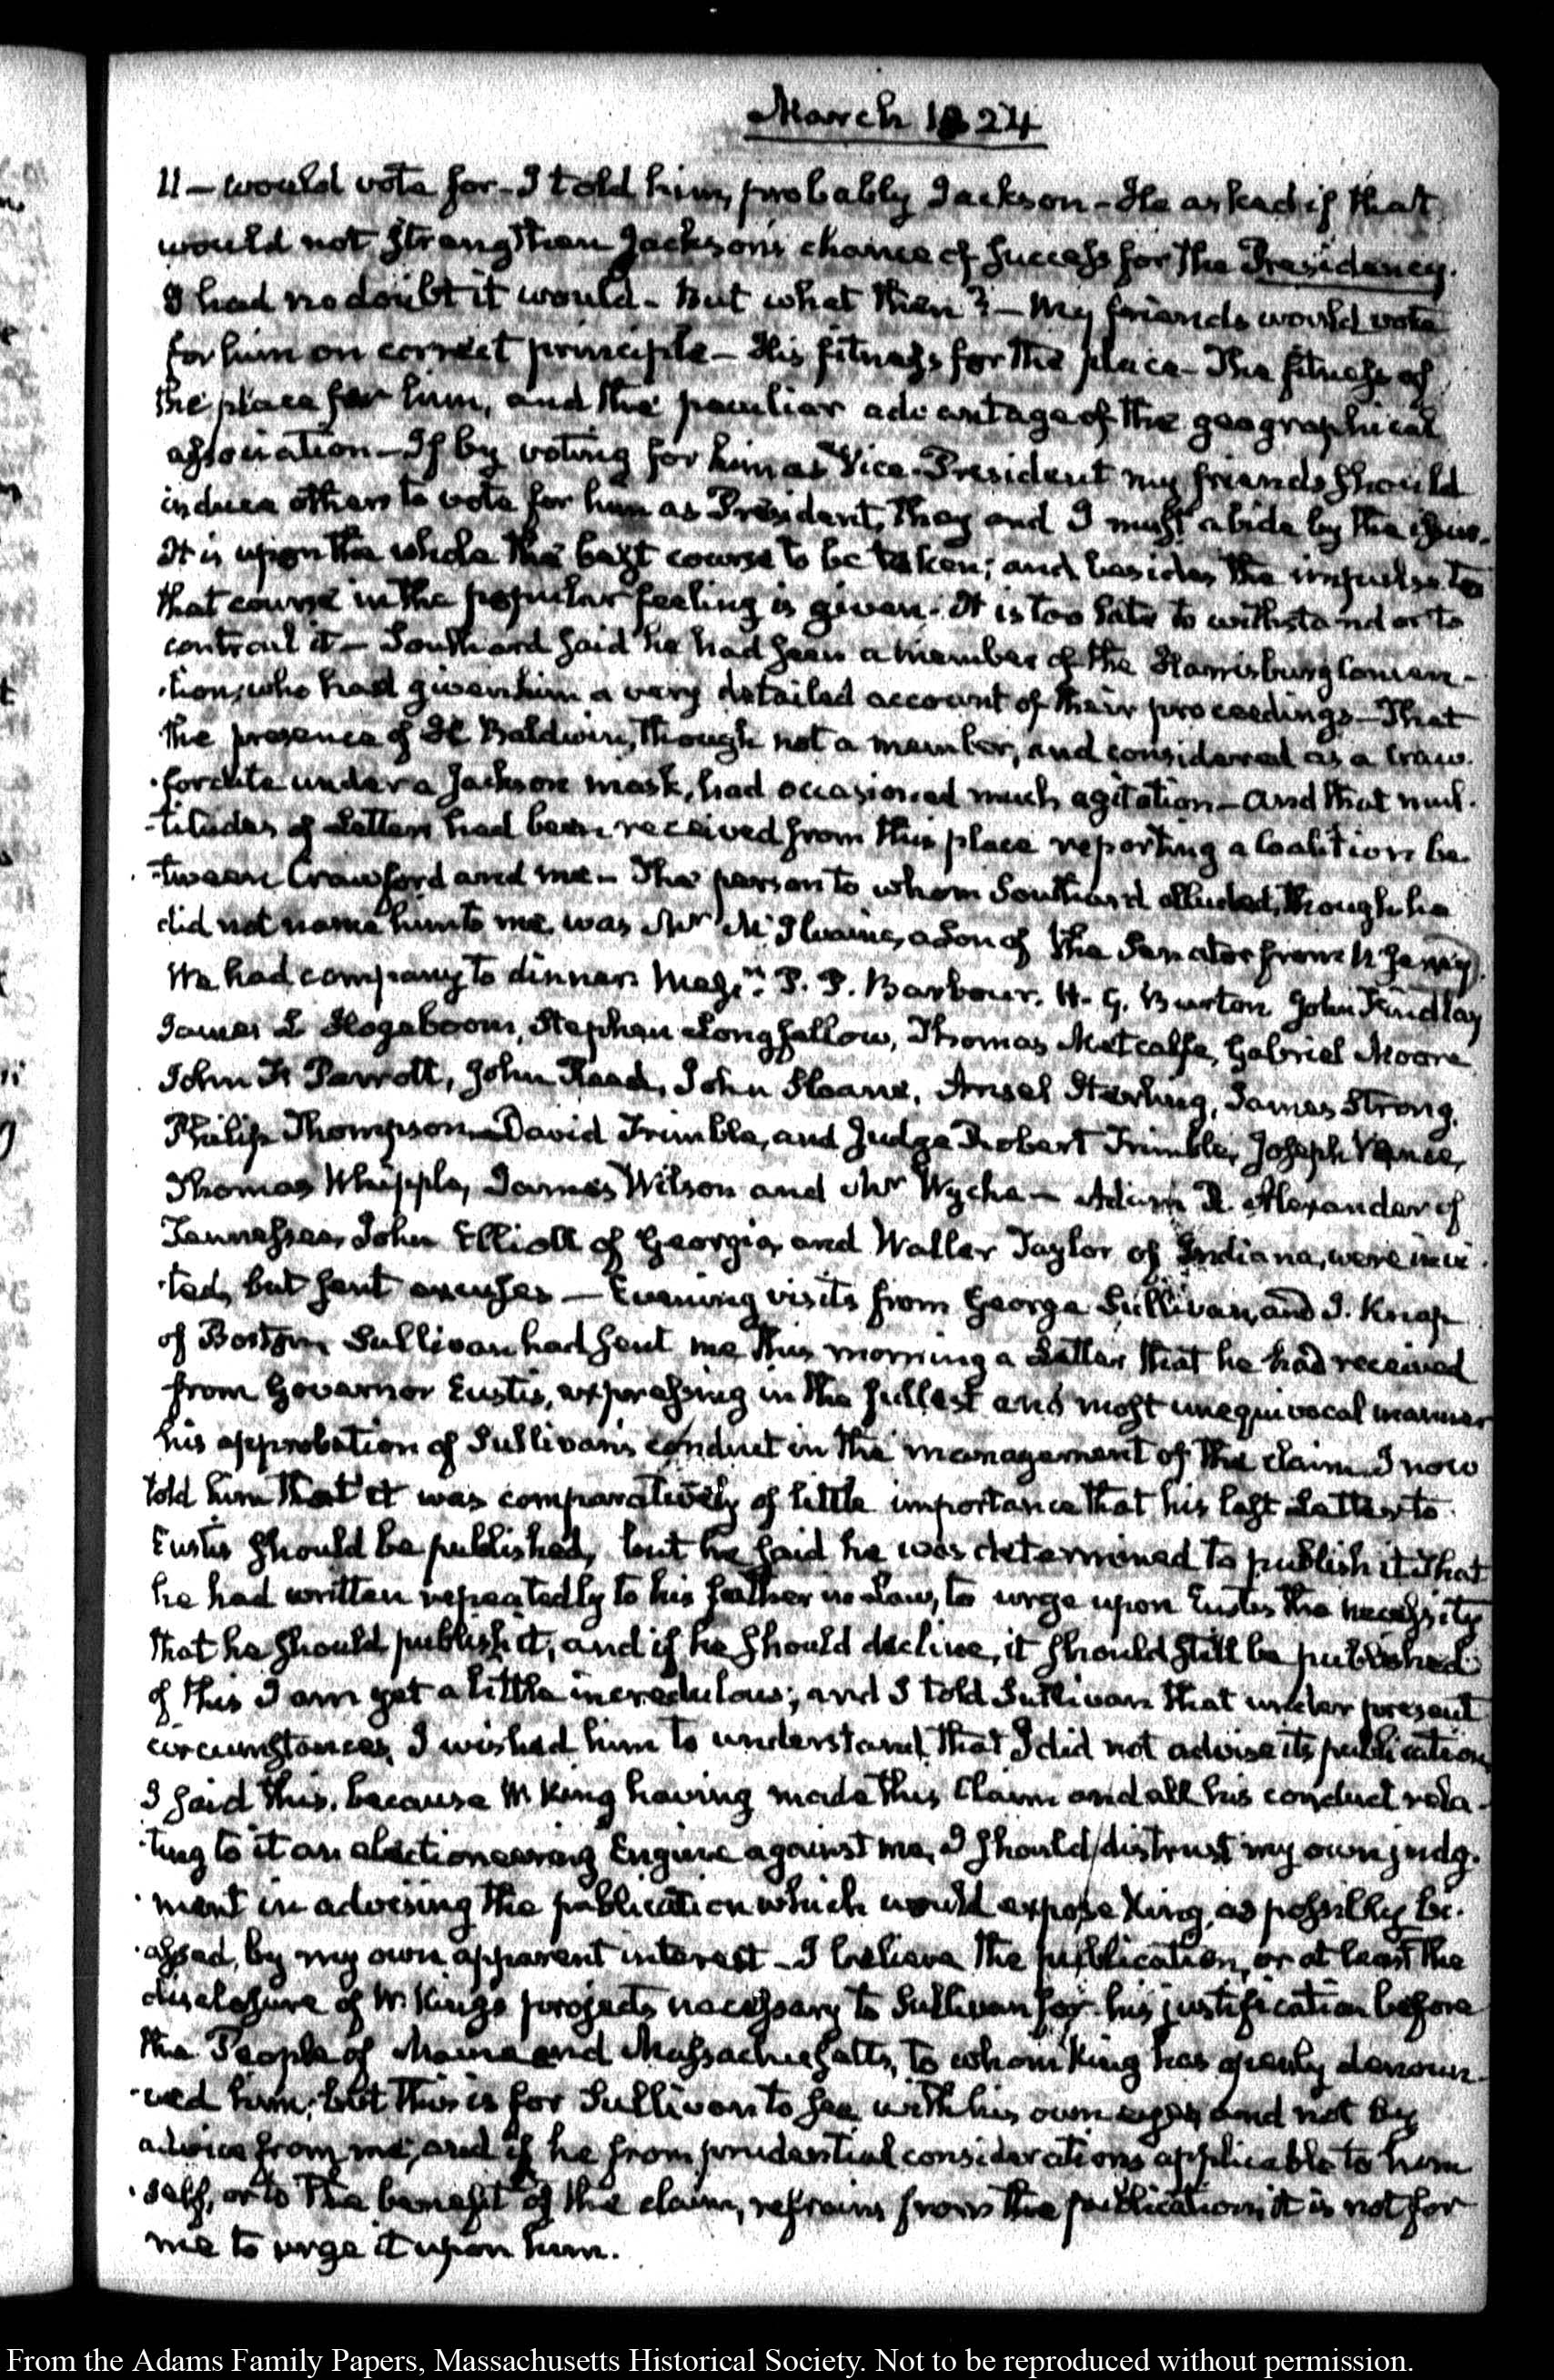 March 1824
11 — would vote for — I told him, probably Jackson — He asked if that
would not strengthen Jackson's chance of success for the Presidency.
I had no doubt it would — But what then? — My friends would vote
for him on correct principle — His fitness for the place — The fitness of
the place for him, and the peculiar advantage of the geographical
association — If by voting for him as Vice-President my friends should
induce others to vote for him as President, they and I must abide by the issue.
It is upon the whole the best course to be taken; and besides the impulse to
that course in the popular feeling is given. It is too late to withstand or to
controul it — Southard said he had seen a member of the Harrisburg Conven-
-tion, who had given him a very detailed account of their proceedings — That
the presence of H Baldwin, though not a member, and considered as a Craw-
-fordite under a Jackson mask, had occasioned much agitation — and that mul-
-titudes of Letters had been received from this place reporting a Coalition be-
-tween Crawford and me — The person to whom Southard alluded, though he
did not name him to me, was Mr McIlvaine, a Son of the Senator from N Jersey
We had company to dinner. Messrs. P. P. Barbour. H. G. Burton John Findlay
James L Hogeboom, Stephen Longfellow, Thomas Metcalfe, Gabriel Moore
John F Parrott, John Reed, John Sloane, Ansel Sterling, James Strong,
Philip Thompson David Trimble, and Judge Robert Trimble, Joseph Vance,
Thomas Whipple, James Wilson and Mr Wyche — Adam R. Alexander of
Tennessee, John Elliott of Georgia, and Waller Taylor of Indiana, were invi-
-ted, but sent excuses — Evening visits from George Sullivan, and J. Knap
of Boston. Sullivan had sent me this morning a Letter that he had received
from Governor Eustis, expressing in the fullest and most unequivocal manner
his approbation of Sullivan's conduct in the management of the claim. I now
told him that it was comparatively of little importance that his last Letter to
Eustis should be published, but he said he was determined to publish it. That
he had written repeatedly to his father in Law, to urge upon Eustis the necessity
that he should publish it, and if he should decline, it should still be published
of this I am yet a little incredulous; and I told Sullivan that under present
circumstances, I wished him to understand that I did not advise its publication
I said this, because W. King having made this Claim and all his conduct rela-
-ting to it an electioneering Engine against me, I should distrust my own judg-
-ment in advising the publication which would expose King, as possibly bi-
-assed, by my own apparent interest — I believe the publication, or at least the
disclosure of W. King's projects necessary to Sullivan for his justification before
the People of Maine and Massachusetts, to whom King has openly denoun-
-ced him; but this is for Sullivan to see with his own eyes, and not by
advice from me; and if he from prudential considerations applicable to him
-self, or to the benefit of the claim, refrains from the publication, it is not for
me to urge it upon him.
From the Adams Family Papers, Massachusetts Historical Society. Not to be reproduced without permission.